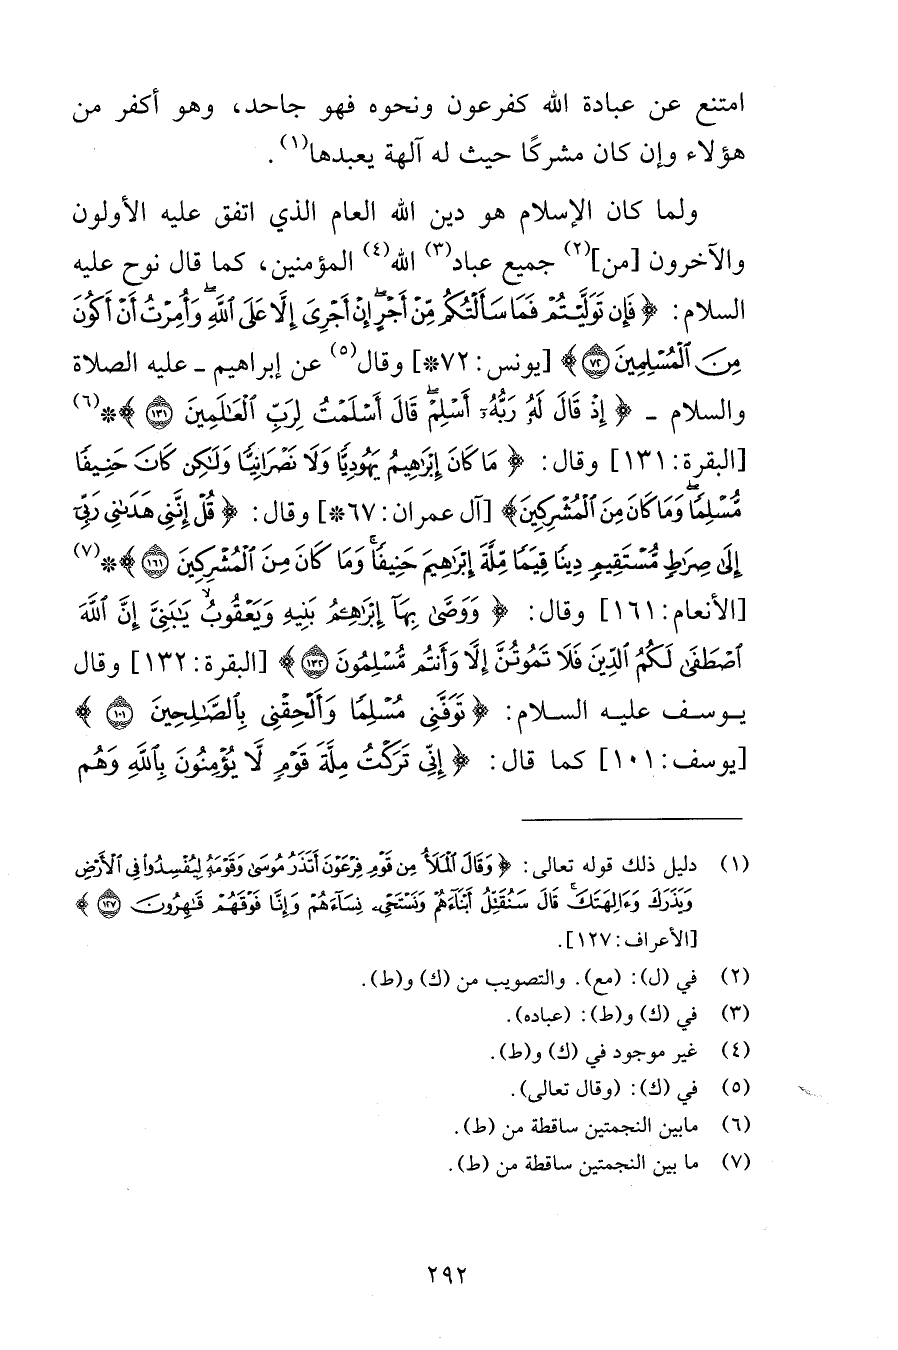 امتنع عن عبادة الله كفرعون ونحوه فهو جاحد، وهو أكفر من
هؤلاء وإن كان مشركًا حيث له آلهة يعبدها(١).
ولما كان الإسلام هو دين الله العام الذي اتفق عليه الأولون
والآخرون [من](٢) جميع عباد(٣) الله(٤) المؤمنين، كما قال نوح عليه
السلام: ﴿فَإِن تَوَلَّيْتُمْ فَمَا سَأَلْتُكُم مِّنْ أَجْرٍ ۖ إِنْ أَجْرِىَ إِلَّا عَلَى ٱللَّهِ ۖ وَأُمِرْتُ أَنْ أَكُونَ
مِنَ ٱلْمُسْلِمِينَ ٧٢﴾ [يونس: ٧٢*] وقال(٥) عن إبراهيم - عليه الصلاة
والسلام - ﴿إِذْ قَالَ لَهُۥ رَبُّهُۥٓ أَسْلِمْ ۖ قَالَ أَسْلَمْتُ لِرَبِّ ٱلْعَٰلَمِينَ ١٣١﴾*(٦)
[البقرة: ١٣١] وقال: ﴿مَا كَانَ إِبْرَٰهِيمُ يَهُودِيًّا وَلَا نَصْرَانِيًّا وَلَٰكِن كَانَ حَنِيفًا
مُّسْلِمًا ۖ وَمَا كَانَ مِنَ ٱلْمُشْرِكِينَ﴾ [آل عمران: ٦٧*] وقال: ﴿قُلْ إِنَّنِى هَدَىٰنِى رَبِّىٓ
إِلَىٰ صِرَٰطٍ مُّسْتَقِيمٍ دِينًا قِيَمًا مِّلَّةَ إِبْرَٰهِيمَ حَنِيفًا ۚ وَمَا كَانَ مِنَ ٱلْمُشْرِكِينَ ١٦١﴾*(٧)
[الأنعام: ١٦١] وقال: ﴿وَوَصَّىٰ بِهَآ إِبْرَٰهِـۧمُ بَنِيهِ وَيَعْقُوبُ يَٰبَنِىَّ إِنَّ ٱللَّهَ
ٱصْطَفَىٰ لَكُمُ ٱلدِّينَ فَلَا تَمُوتُنَّ إِلَّا وَأَنتُم مُّسْلِمُونَ ١٣٢﴾ [البقرة: ١٣٢] وقال
يوسف عليه السلام: ﴿تَوَفَّنِى مُسْلِمًا وَأَلْحِقْنِى بِٱلصَّٰلِحِينَ ١٠١﴾
[يوسف: ١٠١] كما قال: ﴿إِنِّى تَرَكْتُ مِلَّةَ قَوْمٍ لَّا يُؤْمِنُونَ بِٱللَّهِ وَهُم
(١) دليل ذلك قوله تعالى: ﴿وَقَالَ ٱلْمَلَأُ مِن قَوْمِ فِرْعَوْنَ أَتَذَرُ مُوسَىٰ وَقَوْمَهُۥ لِيُفْسِدُوا۟ فِى ٱلْأَرْضِ
وَيَذَرَكَ وَءَالِهَتَكَ ۚ قَالَ سَنُقَتِّلُ أَبْنَآءَهُمْ وَنَسْتَحْىِۦ نِسَآءَهُمْ وَإِنَّا فَوْقَهُمْ قَٰهِرُونَ ١٢٧﴾
[الأعراف: ١٢٧].
(٢) في (ل): (مع). والتصويب من (ك) و(ط).
(٣) في (ك) و(ط): (عباده).
(٤) غير موجود في (ك) و(ط).
(٥) في (ك): (وقال تعالى).
(٦) مابين النجمتين ساقطة من (ط).
(٧) ما بين النجمتين ساقطة من (ط).
٢٩٢